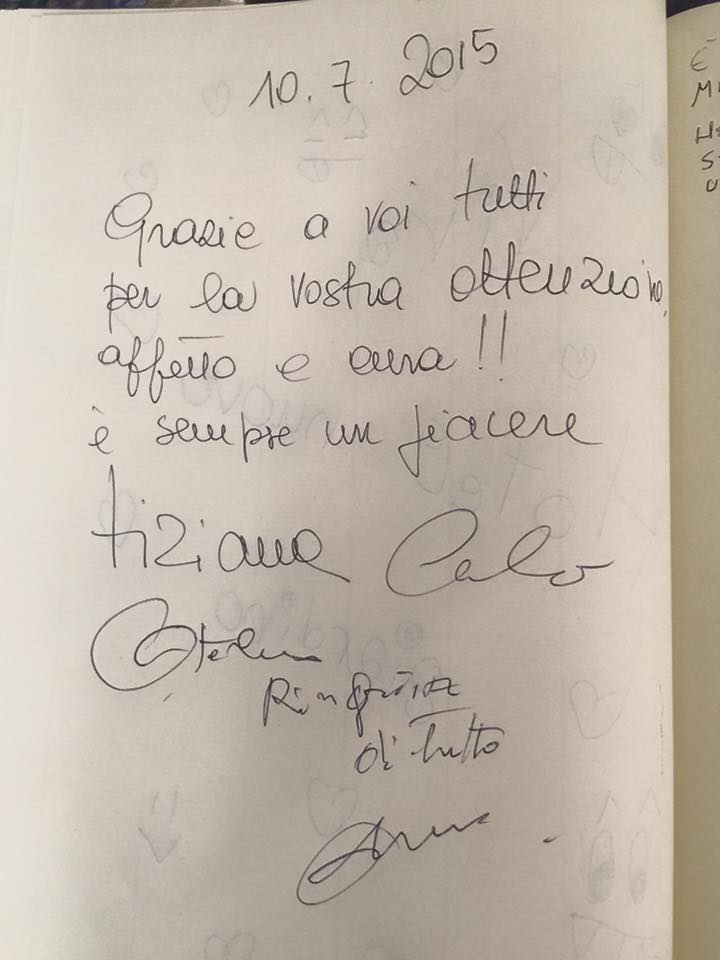 10.7.2015
Grazie a voi tutti
per la vostra attenzione,
affetto e cura!!
è sempre un piacere
tiziana
di tutto
È